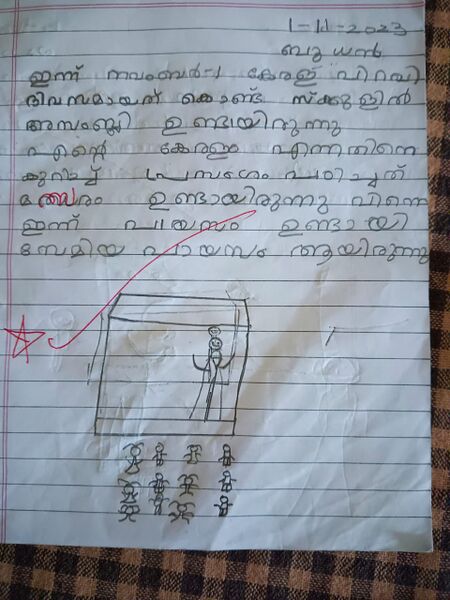 1-11-2023
ബുധൻ
ഇന്ന് നവംബർ-1 കേരള പിറവി
ദിവസമായത് കൊണ്ട് സ്ക്കൂളിൽ
അസംബ്ലി ഉണ്ടായിരുന്നു
എന്റെ കേരളം എന്നതിനെ
കുറിച്ച് പ്രസംഗം
മത്സരം ഉണ്ടായിരുന്നു പിന്നെ
ഇന്ന് പായസം ഉണ്ടായി
സേമിയ പായസം ആയിരുന്നു